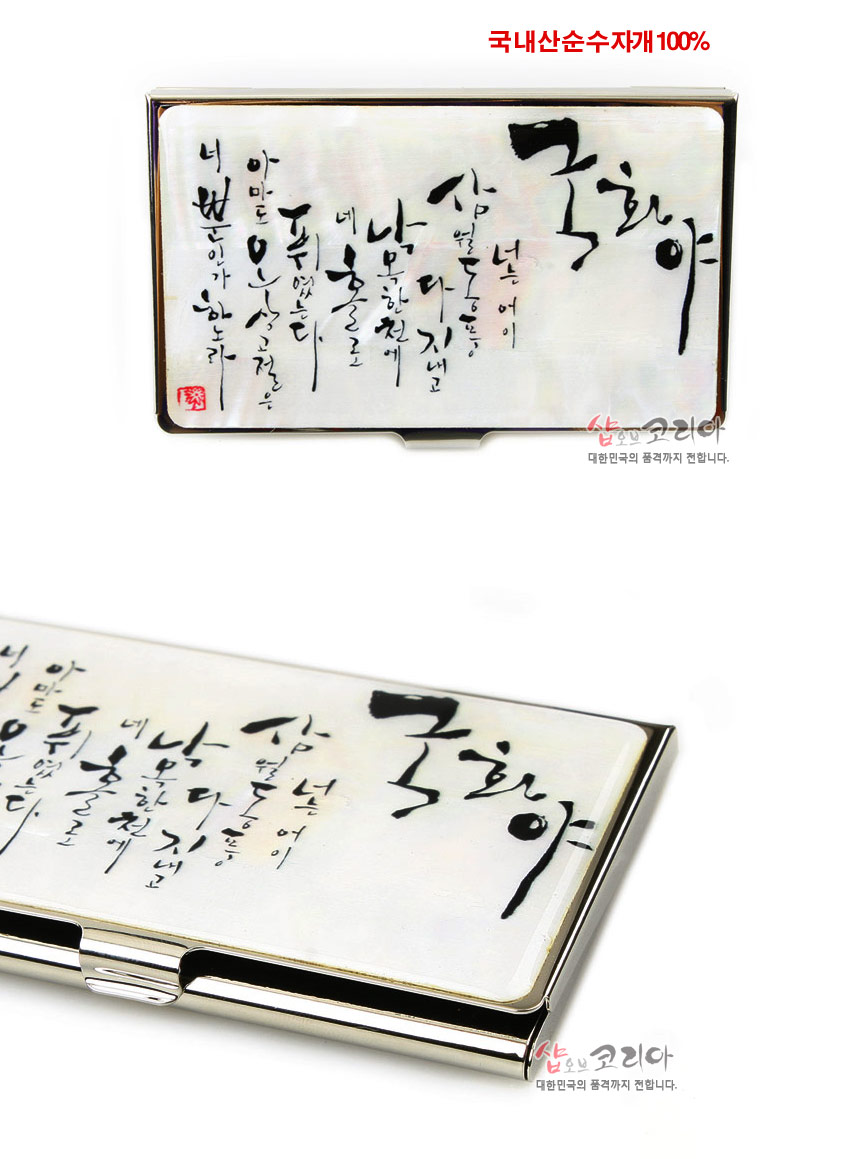 국내산순수자개100%
국화야
너는 어이
삼월동풍
다 지내고
낙목한천에
네 홀로
퓌였는다
아마도 오상고절은
너뿐인가 하노라
샵오브코리아
대한민국의 품격까지 전합니다.
국화야
너는 어이
삼월동풍
다 지내고
낙목한천에
네 홀로
퓌였는다
아마도
너
샵오브코리아
대한민국의 품격까지 전합니다.